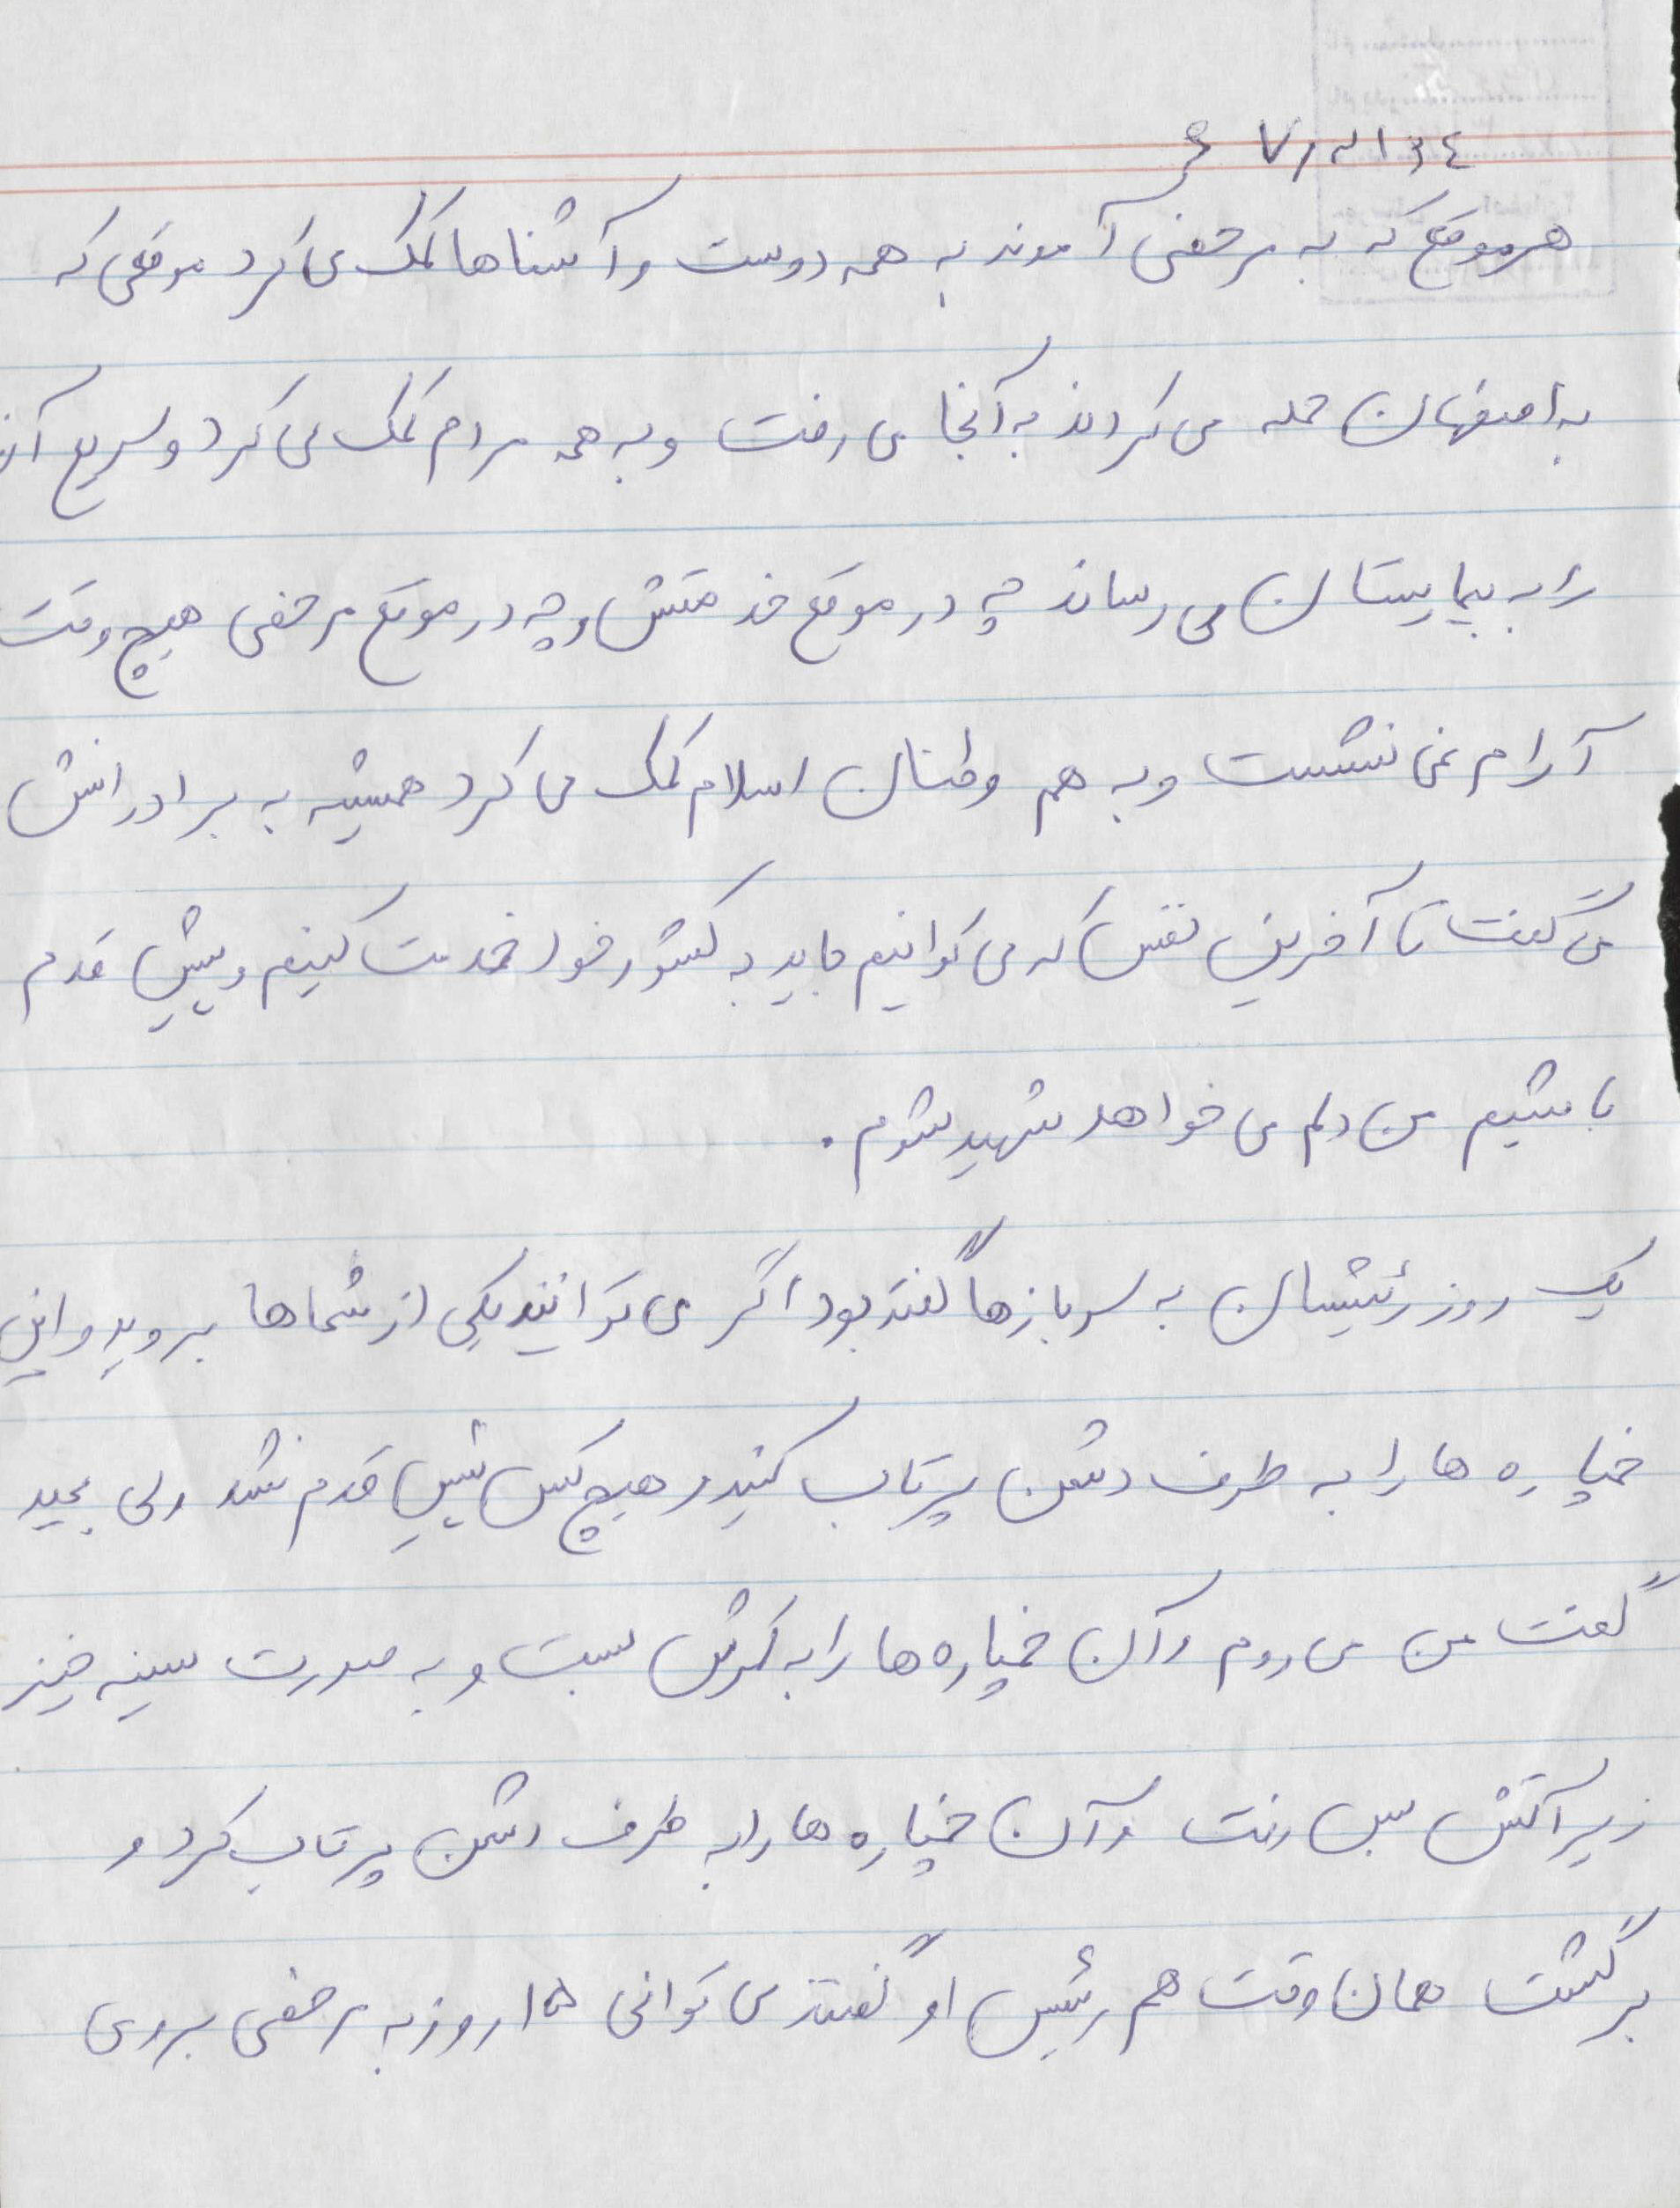 هر موقع که به مرخصی آمدند به همه دوست و آشناها کمک می کرد موقعی که
به اصفهان حمله می کردند به آنجا می رفت و به همه مردم کمک می کرد و سریع آن
را به بیمارستان می رساند چه در موقع خدمتش و چه در موقع مرخصی هیچ وقت
آرام نمی نشست و به هم وطنان اسلام کمک می کرد همیشه به برادرانش
می گفت تا آخرین نفس که می توانیم باید به کشور خود خدمت کنیم و پیش قدم
باشیم من دلم می خواهد شهید شوم .
یک روز رئیسشان به سربازها گفته بود اگر می توانند یکی از شماها بروید و این
خمپاره ها را به طرف دشمن پرتاب کنید و هیچ کس پیش قدم نشد ولی مجید
گفت من می روم و آن خمپاره ها را به کمرش بست و به صورت سینه خیز
زیر آتش رفت و آن خمپاره ها را به طرف دشمن پرتاب کرد و
برگشت همان وقت هم رئیس او گفتند می توانی ۱۵ روز به مرخصی بروی